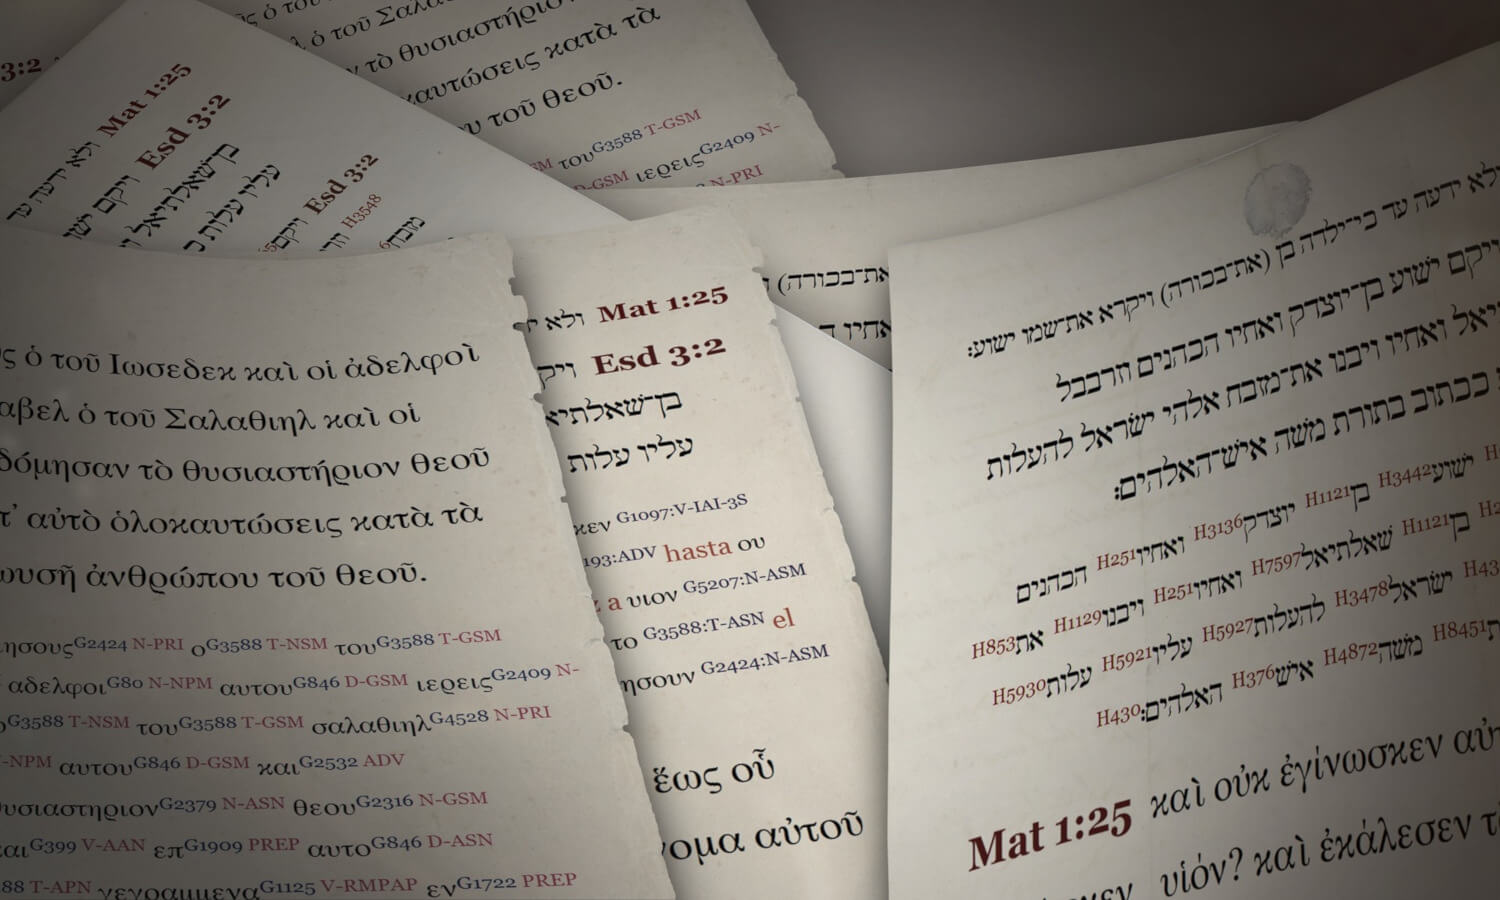 3:2
ולא ידעה עד Mat 1:25
ויקם ישו Esd 3:2
בן־שאלתיאל
עליו עלות כ
ויקם Esd 3:2
H3548
מזבח
ὁ τοῦ Σαλα
τὸ θυσιαστήριο
καυτώσεις κατὰ τὰ
τοῦ θεοῦ.
τουG3588 T-GSM
D-GSM ιερειςG2409 N-
N-PRI
ὁ τοῦ Ιωσεδεκ καὶ οἱ ἀδελφοὶ
αβελ ὁ τοῦ Σαλαθιηλ καὶ οἱ
δόμησαν τὸ θυσιαστήριον θεοῦ
τ’ αὐτὸ ὁλοκαυτώσεις κατὰ τὰ
ωυσῆ ἀνθρώπου τοῦ θεοῦ.
ησουςG2424 N-PRI οG3588 T-NSM τουG3588 T-GSM
αδελφοιG80 N-NPM αυτουG846 D-GSM ιερειςG2409 N-
οG3588 T-NSM τουG3588 T-GSM σαλαθιηλG4528 N-PRI
-NPM αυτουG846 D-GSM καιG2532 ADV
υσιαστηριονG2379 N-ASN θεουG2316 N-GSM
αιG399 V-AAN επG1909 PREP αυτοG846 D-ASN
88 T-APN γεγραμμεναG1125 V-RMPAP ενG1722 PREP
ולא Mat 1:25
ויק Esd 3:2
בן־שאלתיא
עליו עלות
κεν G1097:V-IAI-3S
193:ADV hasta ου
a υιον G5207:N-ASM
το G3588:T-ASN el
ησουν G2424:N-ASM
ἕως οὗ
νομα αὐτοῦ
את־בכורה)
אחיו ה
ולא ידעה עד כי־ילדה בן (את־בכורה) ויקרא את־שמו ישוע׃
ויקם ישוע בן־יוצדק ואחיו הכהנים וזרבבל
יאל ואחיו ויבנו את־מזבח אלהי ישראל להעלות
ככתוב בתורת משה איש־האלהים׃
ישועH3442 בןH1121 יוצדקH3136 ואחיוH251 הכהנים
בןH1121 שאלתיאלH7597 ואחיוH251 ויבנוH1129 אתH853
H43 ישראלH3478 להעלותH5927 עליוH5921 עלותH5930
תH8451 משהH4872 אישH376 האלהים׃H430
Mat 1:25 καὶ οὐκ ἐγίνωσκεν αὐτ
υἱόν? καὶ ἐκάλεσεν τ